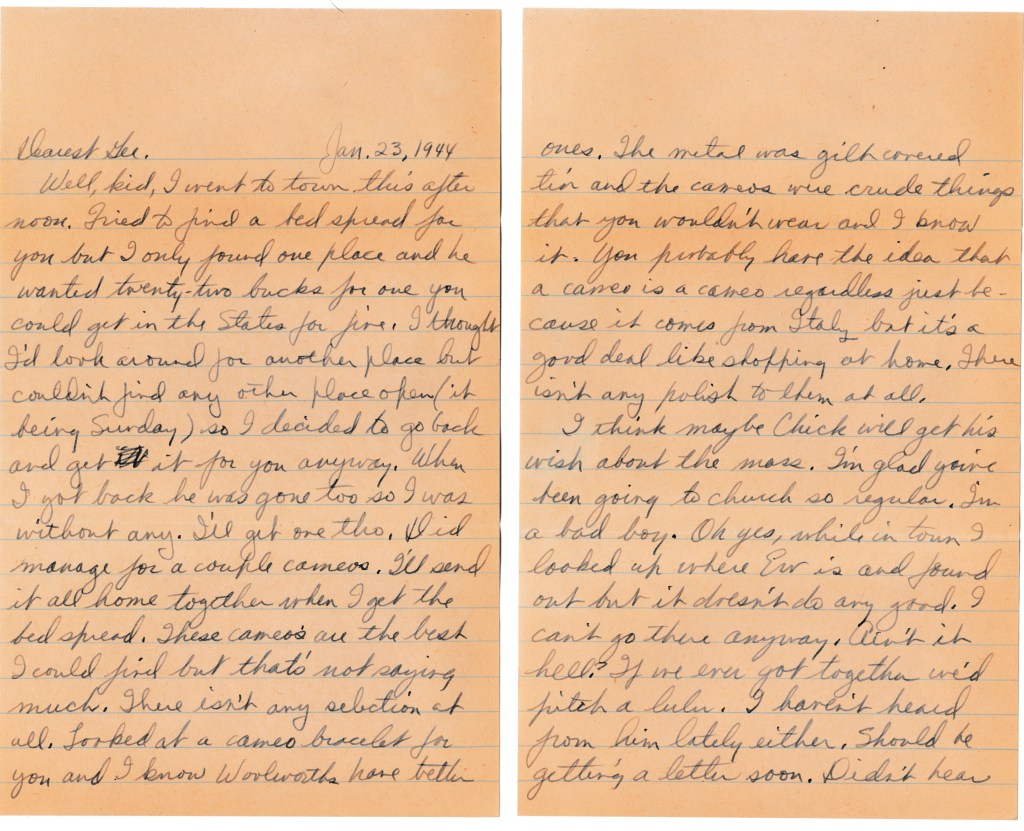 Dearest Lee. Jan. 23, 1944
Well, kid, I went to town this after
noon. Tried to find a bed spread for
you but I only found one place and he
wanted twenty-two bucks for one you
could get in the States for five. I thought
I'd look around for another place but
couldn't find any other place open (it
being Sunday) so I decided to go back
and get it for you anyway. When
I got back he was gone too so I was
without any. I'll get one tho. Did
manage for a couple cameos. I'll send
it all home together when I get the
bed spread. These cameo's are the best
I could find but that's not saying
much. There isn't any selection at
all. Looked at a cameo bracelet for
you and I know Woolworths have better
ones. The metal was gilt covered
tin and the cameos were crude things
that you wouldn't wear and I know
it. You probably have the idea that
a cameo is a cameo regardless just be-
cause it comes from Italy but it's a
good deal like shopping at home. There
isn't any polish to them at all.
I think maybe Chick will get his
wish about the mass. I'm glad you've
been going to church so regular. I'm
a bad boy. Oh yes, while in town I
looked up where Ew is and found
out but it doesn't do any good. I
can't go there anyway. Ain't it
hell? If we ever got together we'd
pitch a lulu. I haven't heard
from him lately either. Should be
getting a letter soon. Didn't hear